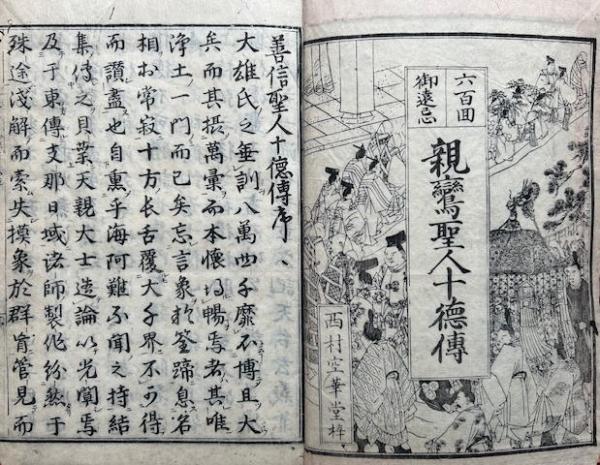 六百回
御遠忌
親鸞聖人十德傳
西村空華堂梓
善信聖人十德傳序
大雄氏之垂訓八萬四千靡不博且大
矣而其攝萬彙而本懷乃暢焉者其唯
浄土一門而已矣忘言象於筌蹄息名
相於常寂十方長舌覆大千界不可得
而讚盡也自熏乎海阿難不聞之持結
集傳之貝葉天親大士造論以光闡焉
及于東傳支那日域諸師製作紛然于
殊途淺解而索失摸象於群盲管見而